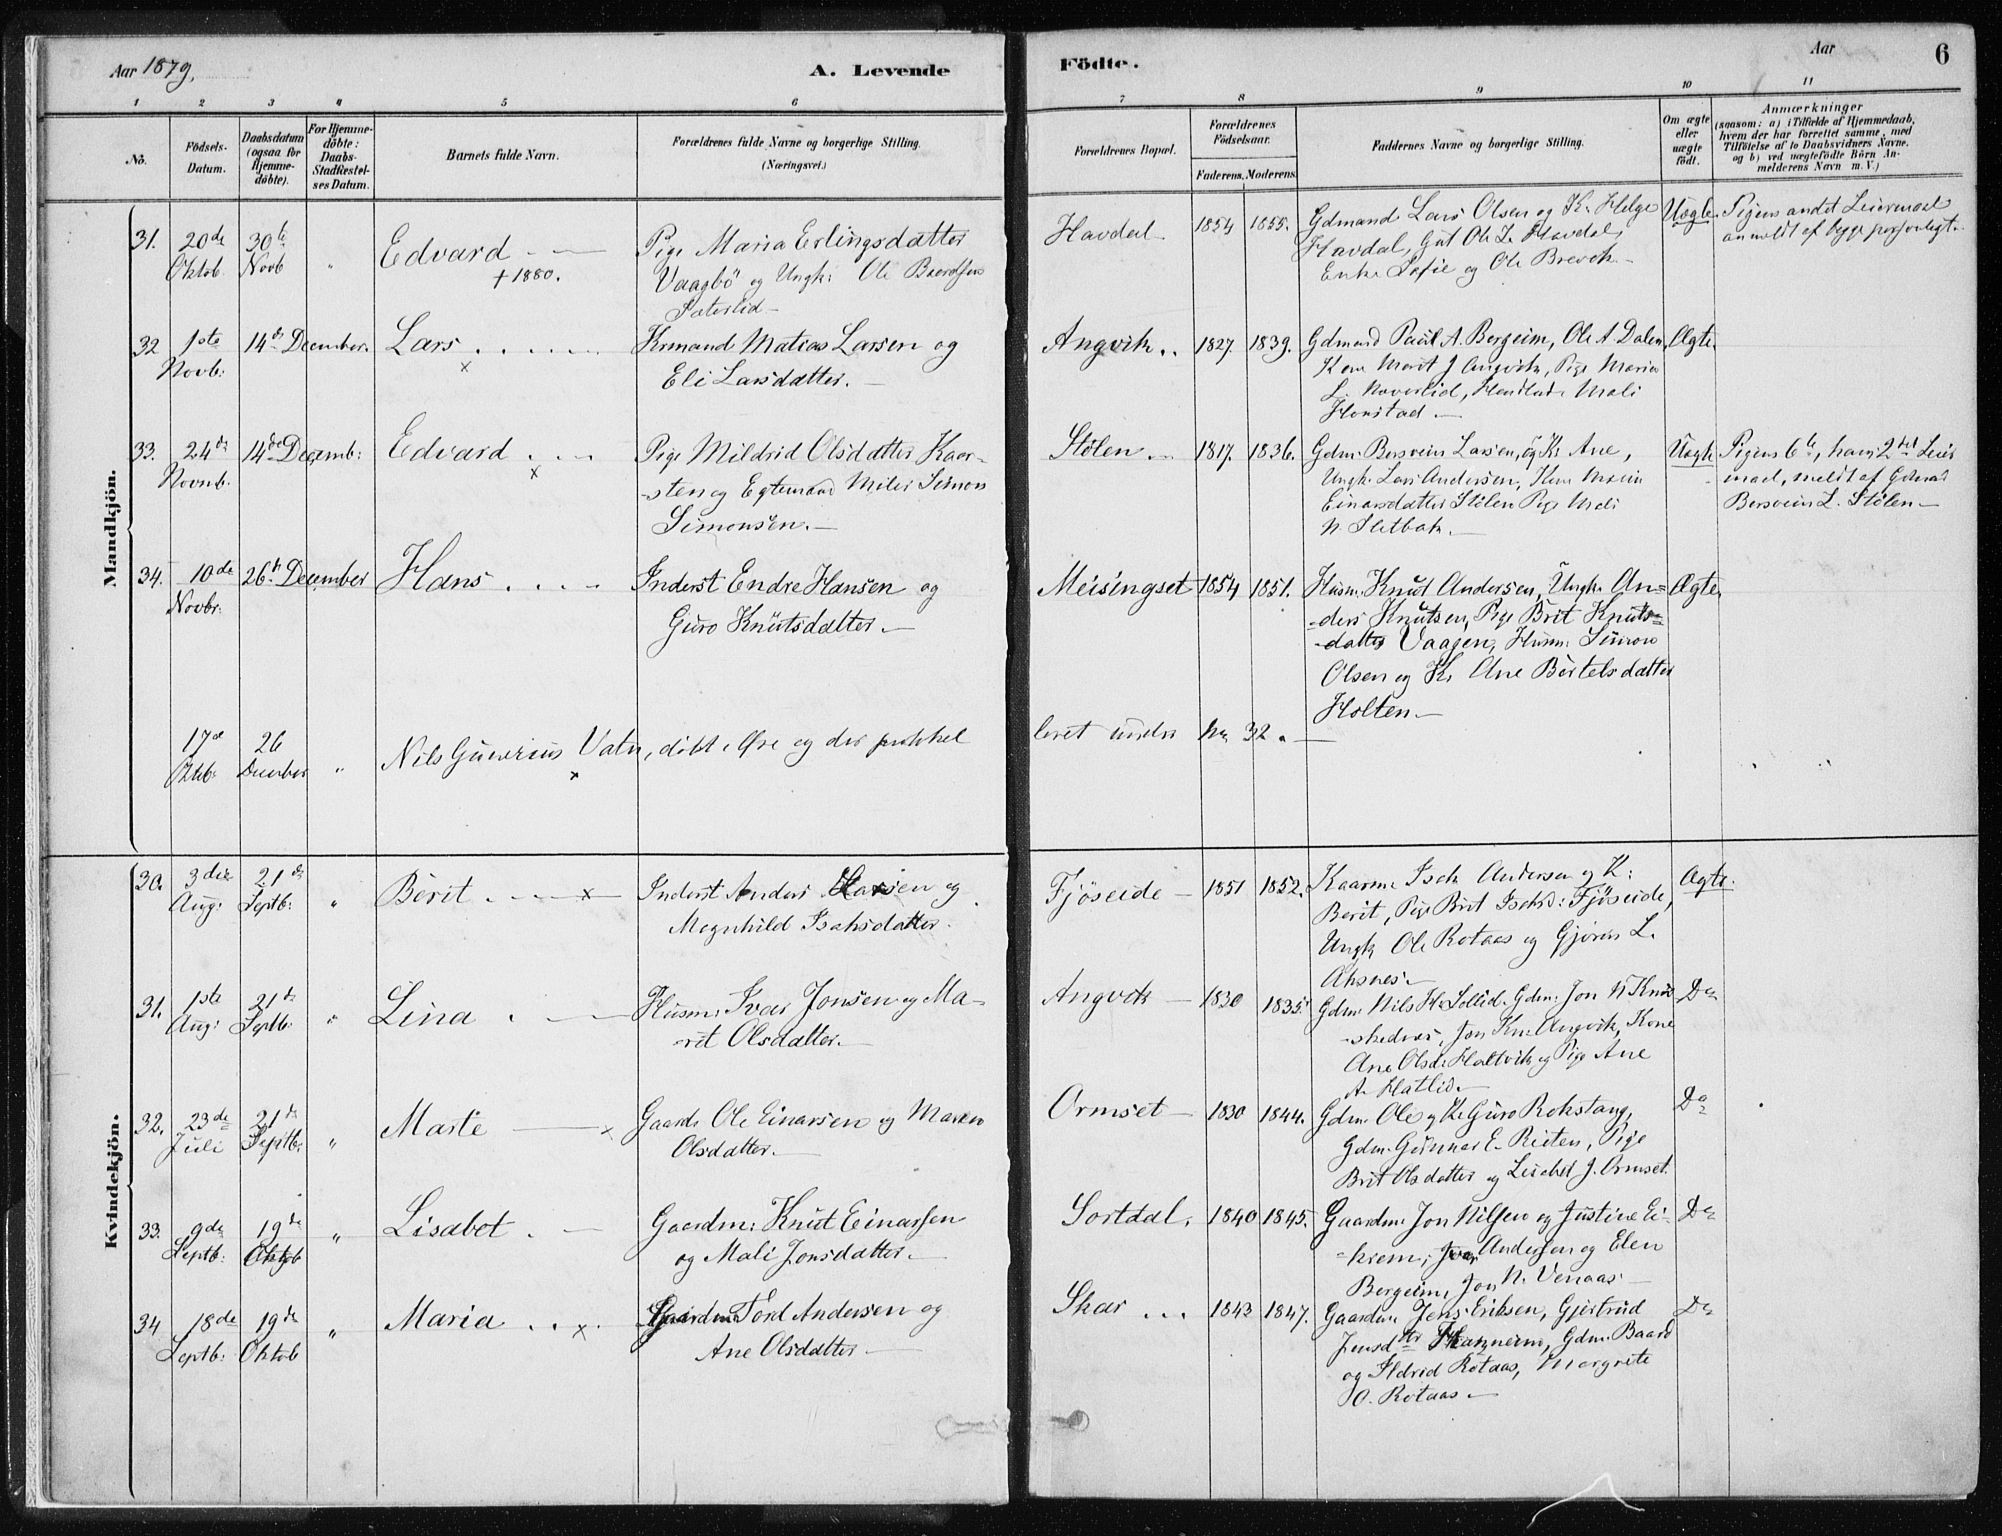 Aar 1879,
A. Levende
Födte.
Aar
6
1 2 3 4 5 6
7 8 9 10 11
No.
Födsels-
Datum.
Daabsdatum
(ogsaa for
Hjemme-
döbte).
For Hjemme-
döbte:
Daabs-
Stadfæstel-
ses Datum.
Barnets fulde Navn.
Forældrenes fulde Navne og borgerlige Stilling.
(Næringsvei.)
Forældrenes Bopæl.
Forældrenes
Födselsaar.
Faderens. Moderens.
Faddernes Navne og borgerlige Stilling.
Om ægte
eller
uægte
födt.
Anmærkninger
(saasom: a) i Tilfælde af Hjemmedaab,
hvem der har forrettet samme, med
Tilföielse af to Daabsvidners Navne.
og b) ved uægtefödte Börn An-
melderens Navn m. V.)
Mandkjön.
31. 20de Oktob. 30te Novb "
Edvard
+ 1880.
Pige Maria Erlingsdatter
Vaagbö og Ungk: Ole Baardsen
Sæterlid
Havdal 1854 1855.
Gdmand Lars Olsen og K. Helge
Havdal, Gut Ole L. Havdal,
Enke Sofie og Ole Brevik
Uægte.
Pigens andet Leiermaal
anmeldt af begge personligt.
32 1ste Novb: 14de December.
Lars
x
Krmand Matias Larsen og
Eli Larsdatter.
Angvik 1827. 1839.
Gdmand Paul A. Bergeim, Ole A. Dalen,
Kone Marit J Angvik, Pige Maria
L. Naverlid, Mali
Honstad
Ægte.
33. 24de Novmb. 14de Decemb:
Edvard
x
Pige Mildrid Olsdatter Kaar-
sten og Egtemand Simon
Simonsen.
Stölen 1817. 1836.
Gdm. Bersvein Larsen, og K. Ane,
Ungk. Lars Andersen, Kone Marin
Einarsdatter Stölen Pige Mali
N. Sletbak.
Uægte
Pigens 6te, hans 2det Leier
maal, meldt af Gdmand
Bersvein L. Stölen
34. 10de Novbr: 26de December
Hans
Inderst Endre Hansen og
Guro Knutsdatter.
Meisingset 1854 1851.
Husm. Knut Andersen, Ungk. An-
ders Knutsen, Pige Brit Knuts-
datter Vaagen, Husm: Simon
Olsen og K. Ane Bertelsdatter
Holten
Ægte.
17de Oktb: 26 December "
Nils Gunerius Vatn, döbt i Öre og der protokol
x
leret under No 32.
Kvindekjön.
30. 3die Aug: 21de Septb: "
Berit x
Inderst Anders Larsen og
Magnhild Isaksdatter.
Fjöseide 1851 1852.
Kaarm. Isak Andersen og K:
Berit, Pige Brit Isaksd: Fjöseide,
Ungk Ole Rotaas og Gjören L.
Aksnes
Ægte.
31. 1ste Aug: 21de Septb: "
Lina
Husm: Ivar Jonsen og Ma-
rit Olsdatter.
Angvik 1830 1835.
Gdm. Nils H. Sollid. Gdm: Jon N Knut-
shednes, Jon Kn. Angvik, Kone
Ane Olsd: Haltvik og Pige Ane
A. Hatlid.
Do
32. 23de Juli 21de Septb. "
Marte x
Gaardm Ole Einarsen og Maren
Olsdatter.
Ormset 1830 1844.
Gdm. Ole og K. Guro Rokstang,
Gdm. Gunnar E. Reiten, Pige
Brit Olsdatter og J. Ormset.
Do
33. 9de Septb: 19de Oktob "
Lisabet
Gaardm: Knut Einarsen
og Mali Jonsdatter.
Sortdal, 1840 1845.
Gaardm. Jon Nilsen og Justine Ei-
krem, Ivar Andersen og Elen
Bergeim, Jon N. Venaas
Do
34 18de Septb: 19de Oktob "
Maria x
Gaardm Tord Andersen og
Ane Olsdatter
Skar 1843 1847.
Gaardm. Jens Eriksen, Gjertrud
Jensdtr Hanneim, Gdm. Baard
og Ildrid Rotaas, Margrete
O. Rotaas
Do